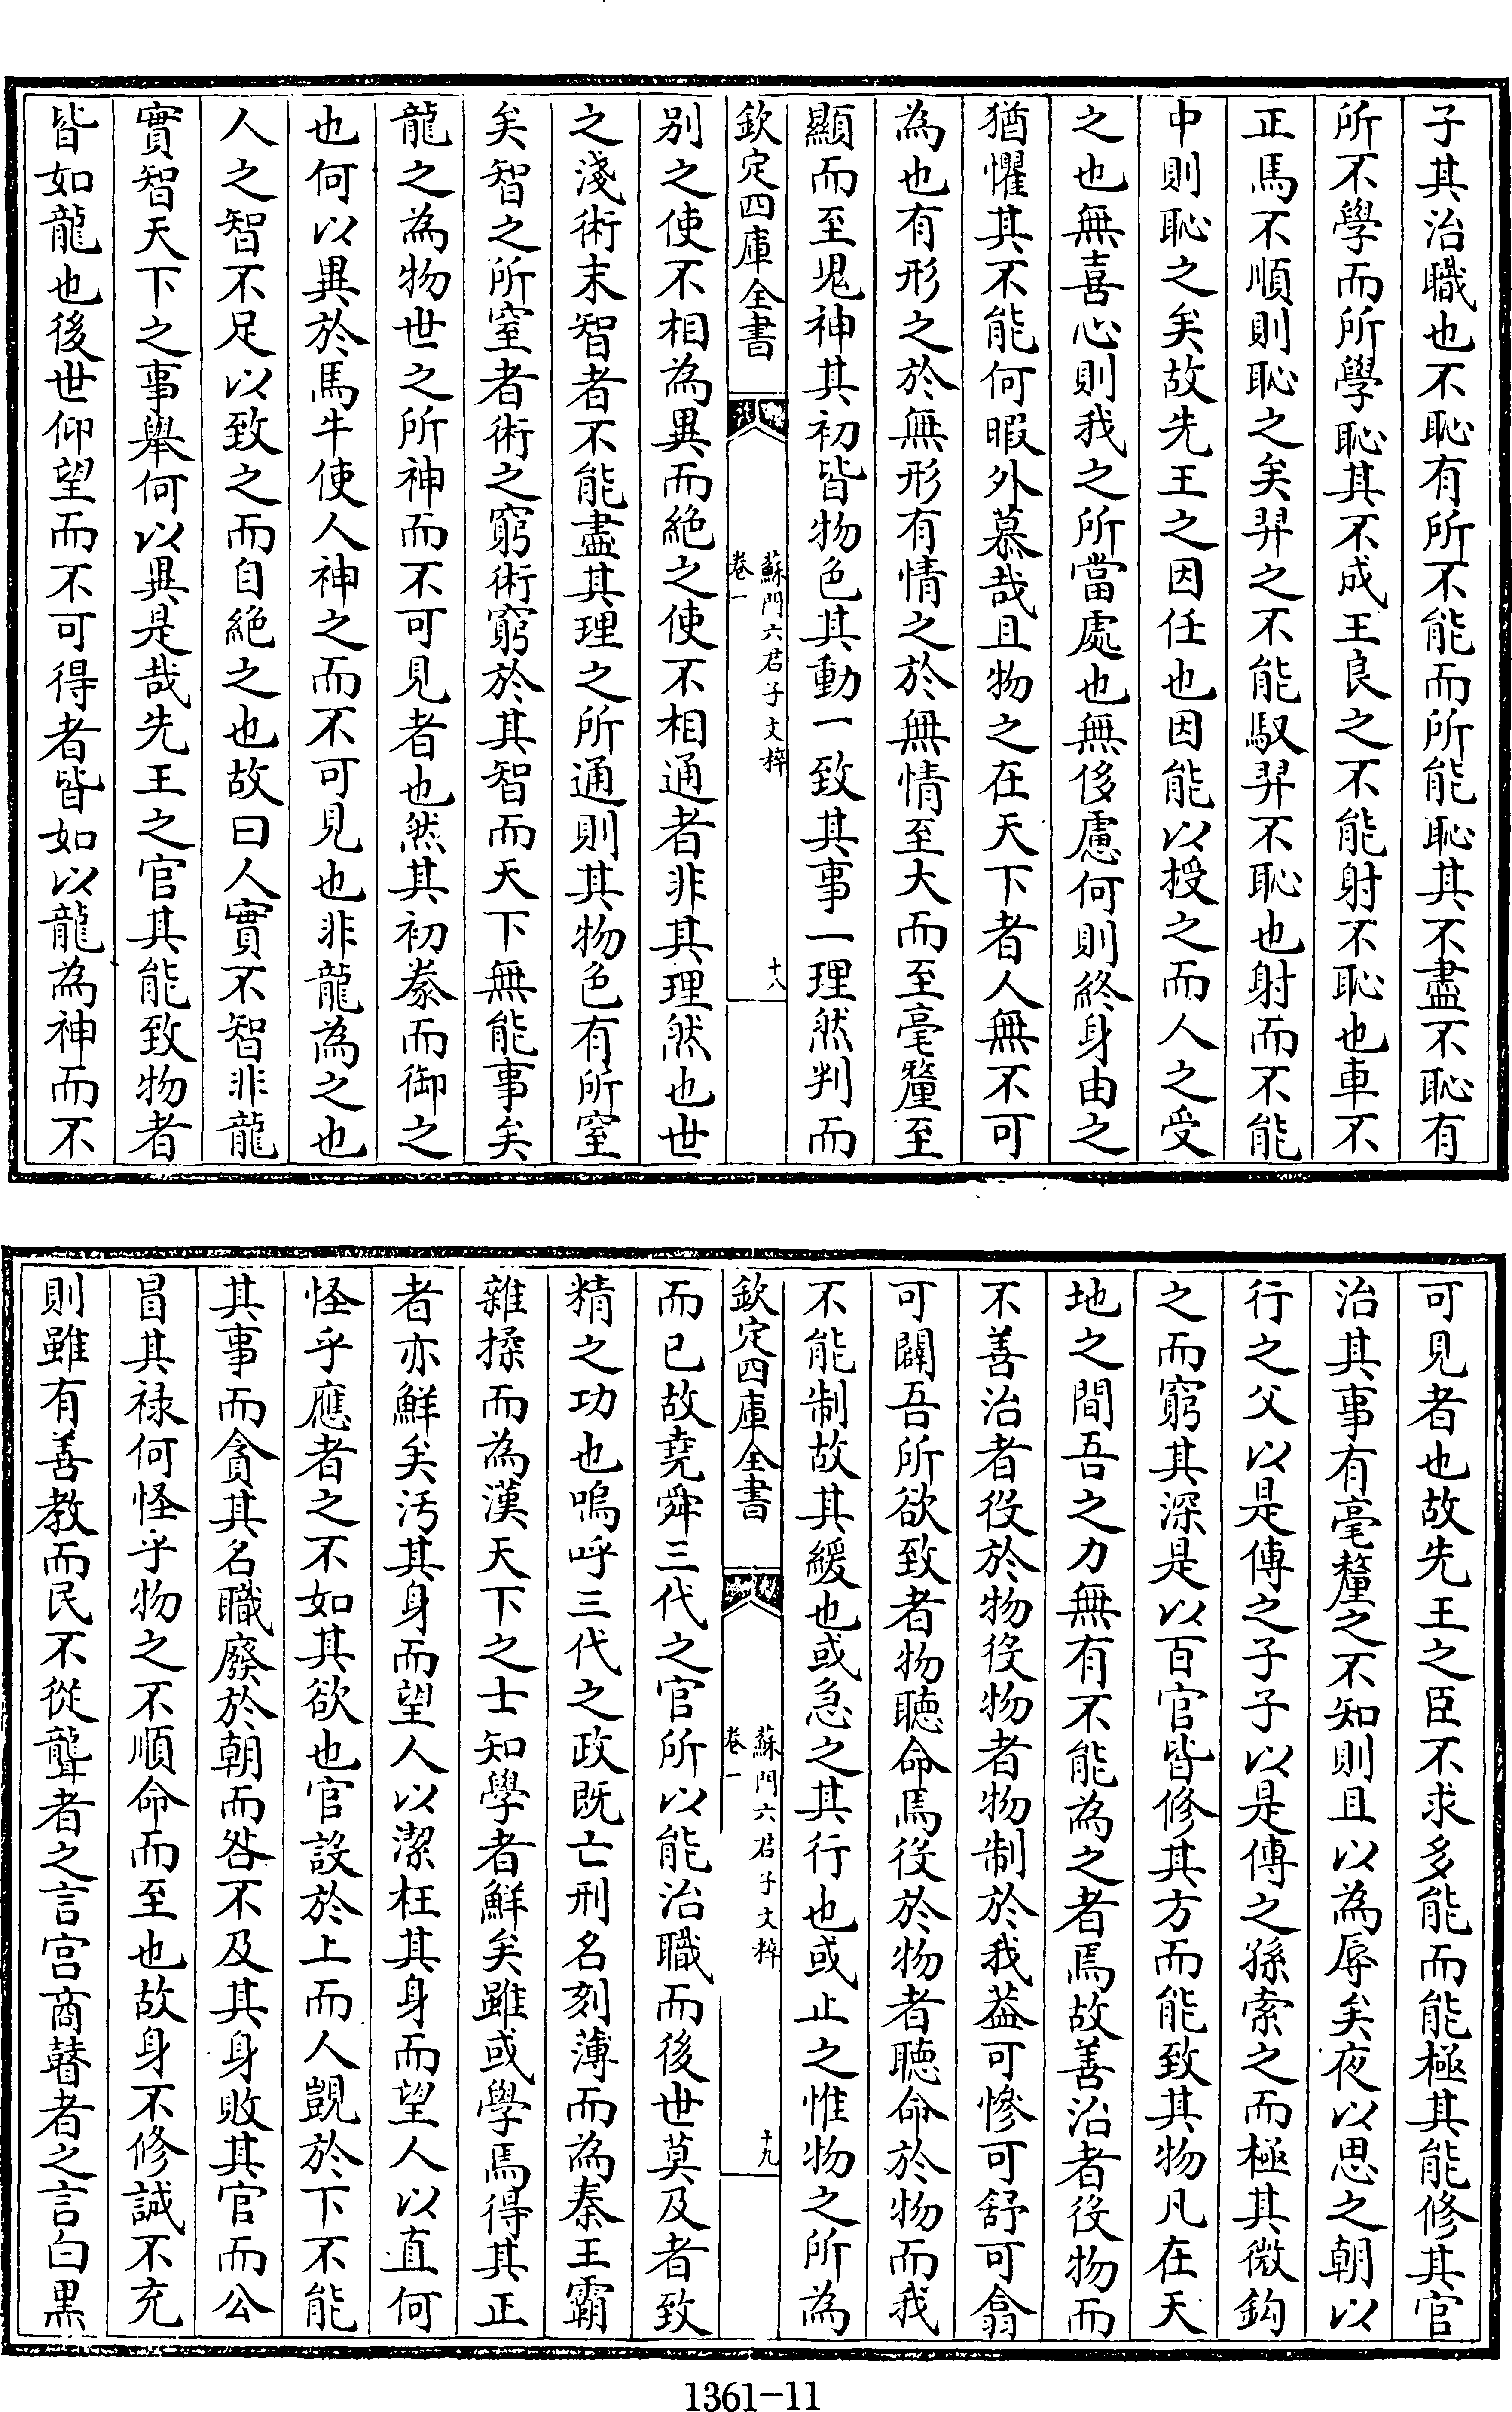 子其治職也不恥有所不能而所能恥其不盡不恥有
所不學而所學恥其不成王良之不能射不恥也車不
正馬不順則恥之矣羿之不能馭羿不恥也射而不能
中則恥之矣故先王之因任也因能以授之而人之受
之也無喜心則我之所當處也無侈慮何則終身由之
猶懼其不能何暇外慕哉且物之在天下者人無不可
為也有形之於無形有情之於無情至大而至毫釐至
顯而至鬼神其初皆物色其動一致其事一理然判而
欽定四庫全書
蘇門六君子文粹
卷一
十八
別之使不相為異而絶之使不相通者非其理然也世
之淺術末智者不能盡其理之所通則其物色有所窒
矣智之所窒者術之窮術窮於其智而天下無能事矣
龍之為物世之所神而不可見者也然其初豢而御之
也何以異於馬牛使人神之而不可見也非龍為之也
人之智不足以致之而自絶之也故曰人實不智非龍
實智天下之事舉何以異是哉先王之官其能致物者
皆如龍也後世仰望而不可得者皆如以龍為神而不
可見者也故先王之臣不求多能而能極其能修其官
治其事有毫釐之不知則且以為辱矣夜以思之朝以
行之父以是傳之子子以是傳之孫索之而極其微鈎
之而窮其深是以百官皆修其方而能致其物凡在天
地之間吾之力無有不能為之者焉故善治者役物而
不善治者役於物役物者物制於我葢可慘可舒可翕
可闢吾所欲致者物聽命焉役於物者聽命於物而我
不能制故其緩也或急之其行也或止之惟物之所為
欽定四庫全書
蘇門六君子文粹
卷一
十九
而已故堯舜三代之官所以能治職而後世莫及者致
精之功也嗚呼三代之政既亡刑名刻薄而為秦王霸
雜揉而為漢天下之士知學者鮮矣雖或學焉得其正
者亦鮮矣汚其身而望人以潔枉其身而望人以直何
怪乎應者之不如其欲也官設於上而人覬於下不能
其事而貪其名職廢於朝而咎不及其身敗其官而公
冒其禄何怪乎物之不順命而至也故身不修誠不充
則雖有善教而民不從聾者之言宫商瞽者之言白黒
1361-11